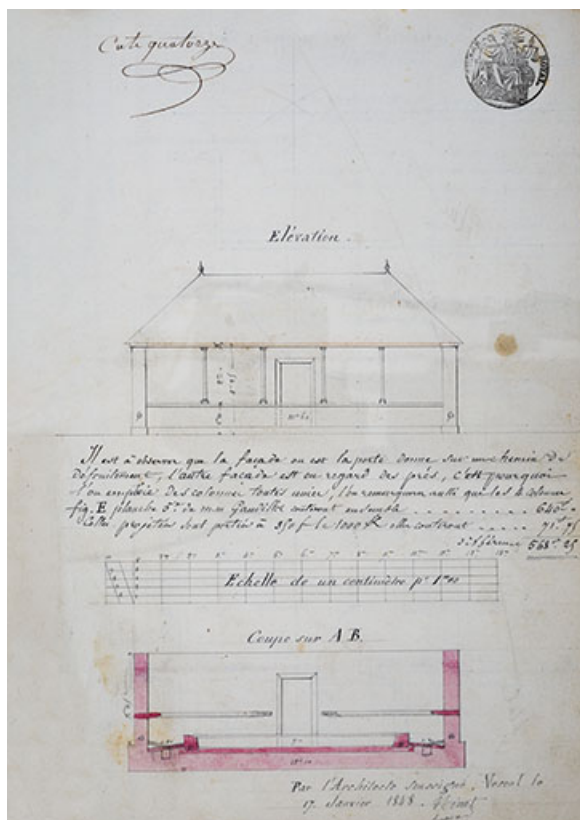 Cote quatorze
ROYAL
Elévation.
Il est à observer que la façade ou est la porte donne sur un chemin de
Défruitement, l'autre façade est en regard des prés, c'est pourquoi
l'on emploie des colonnes toutes unies, l'on remarquera aussi que les 8 colonnes
fig. E planche 5e de m.m Gaudillot coûtent ensemble 640f "
Celles projetées sont portées à 350 f le 1000 k elles coûteront 71f 75
différence 568f 25
Echelle de un centimètre pr 1m00
Coupe sur A B.
Par l'Architecte soussigné, Vesoul le
17 Janvier 1848.